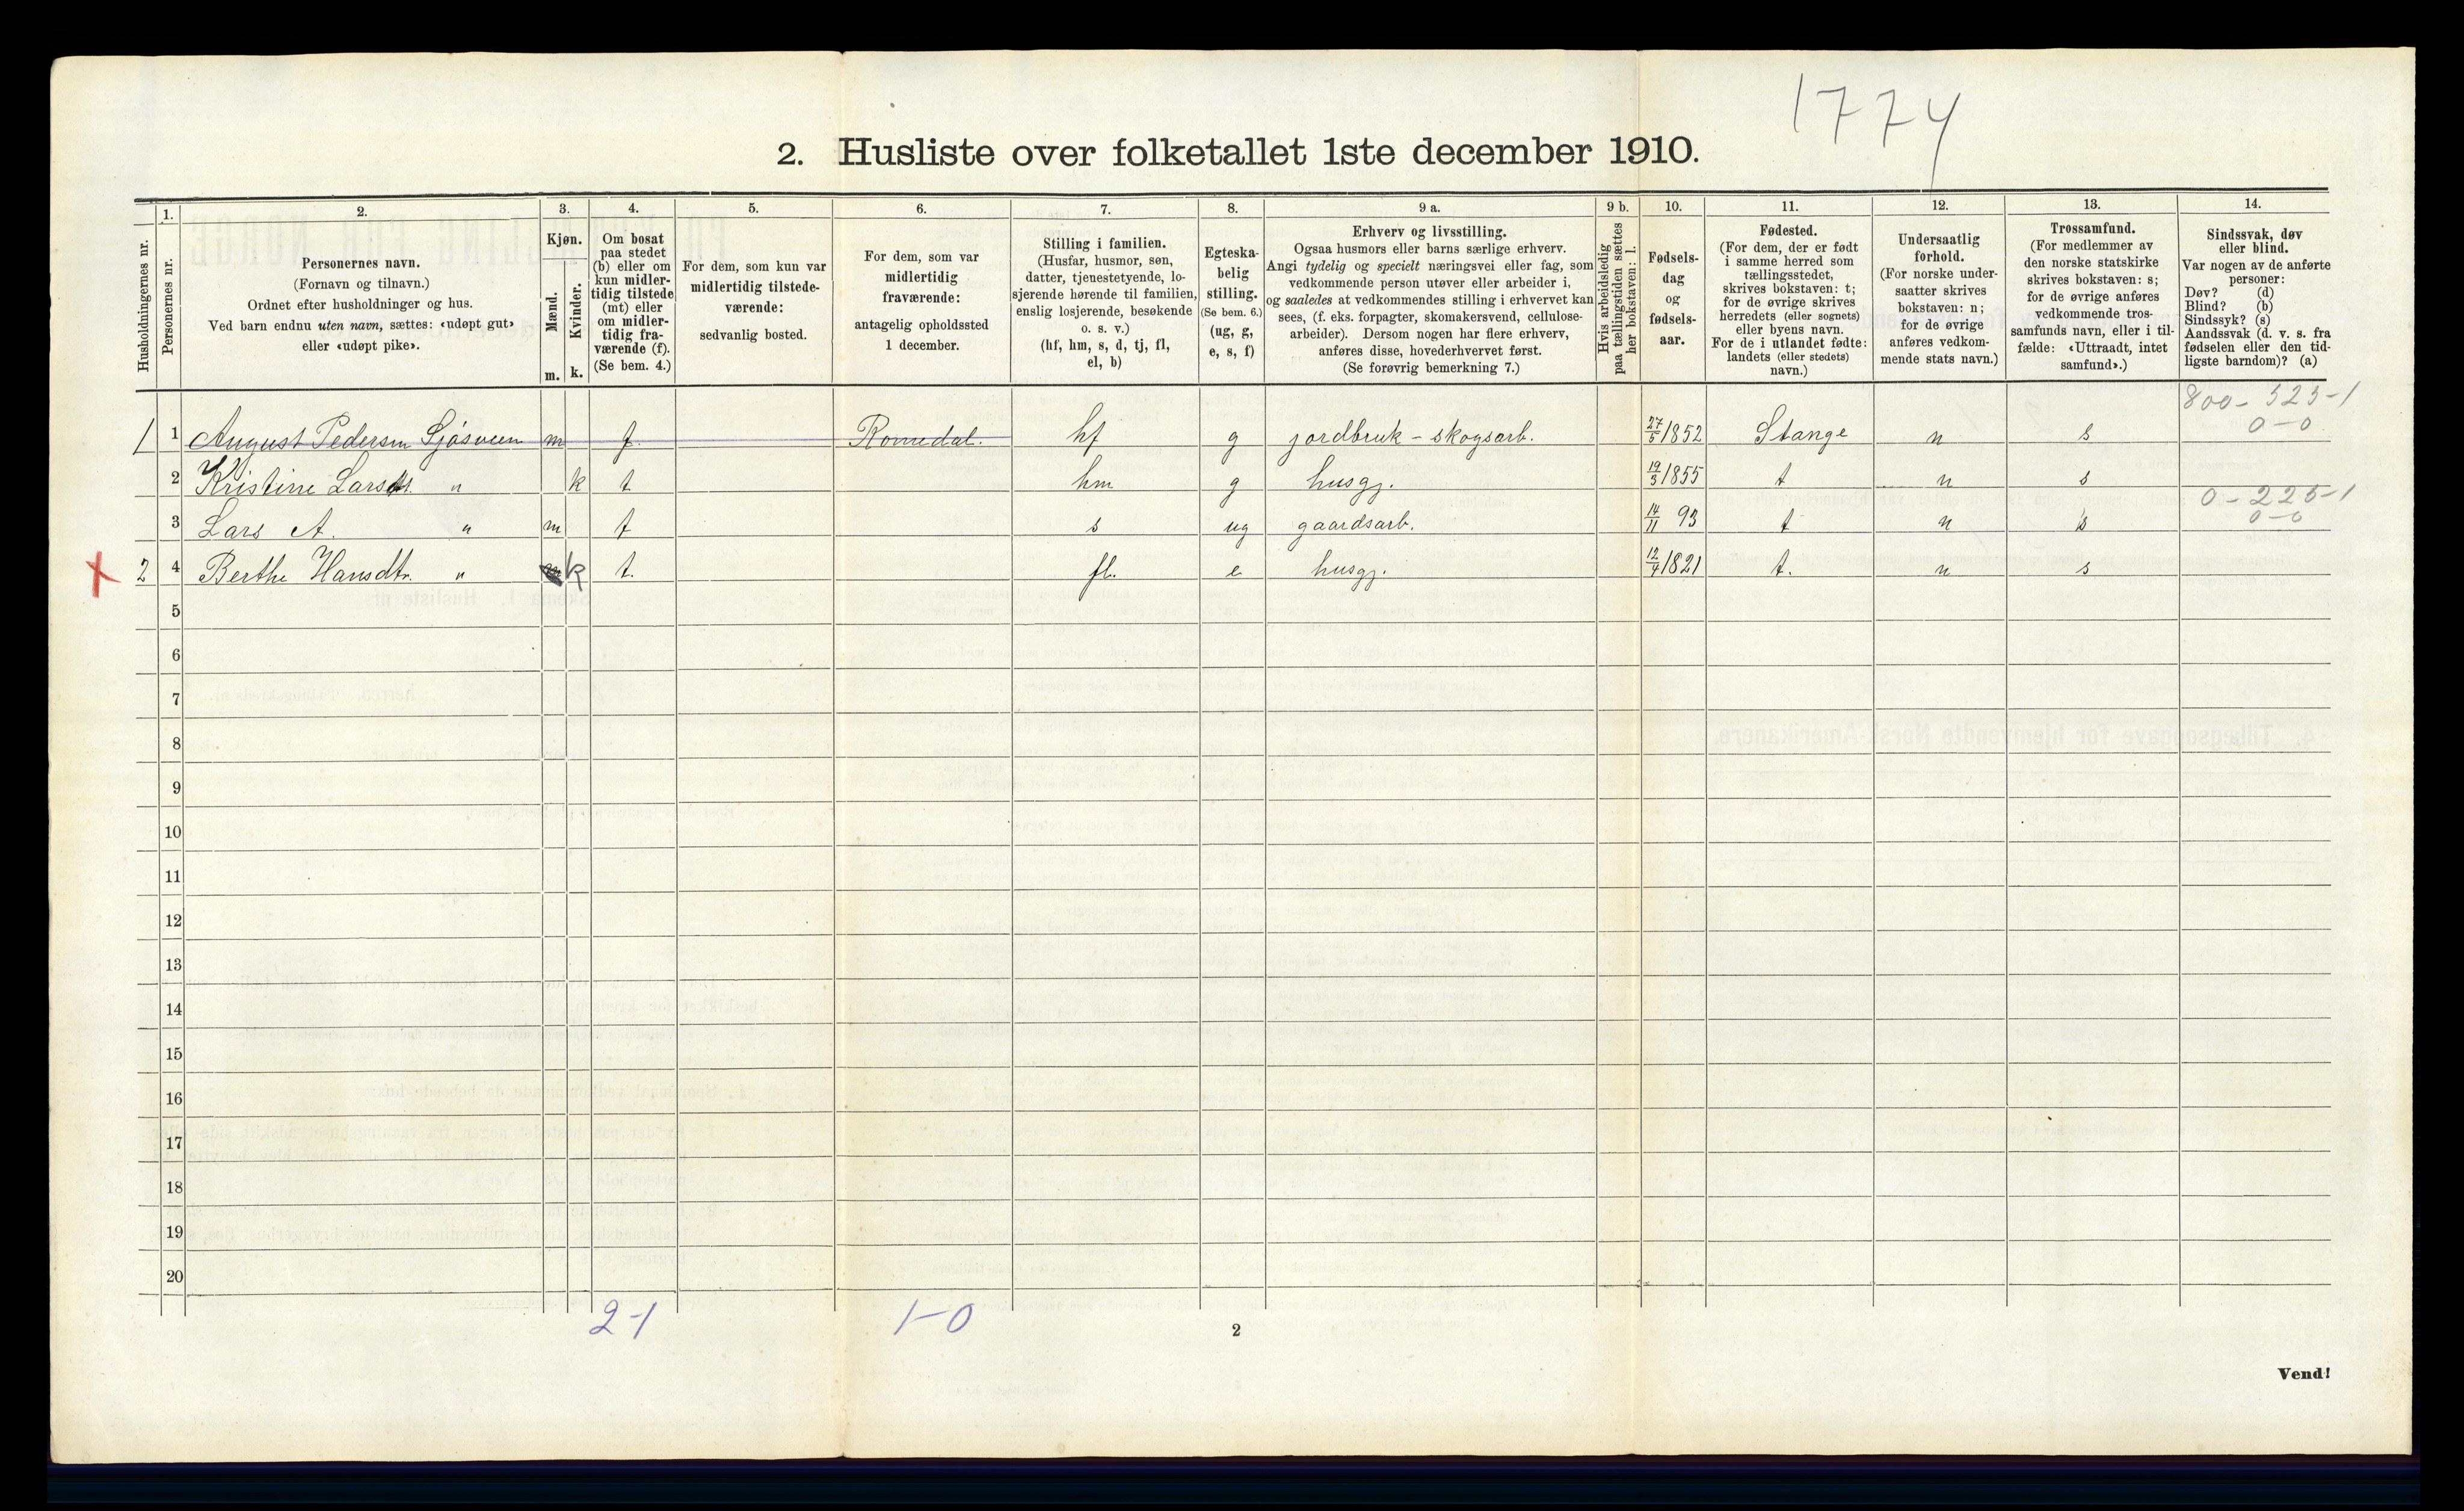 1774
2. Husliste over folketallet 1ste december 1910.
Husholdningernes nr.
1.
Personernes nr.
2.
Personernes navn.
(Fornavn og tilnavn.)
Ordnet efter husholdninger og hus.
Ved barn endnu uten navn, sættes: «udøpt gut»
eller «udøpt pike».
3.
Kjøn.
Mænd.
m.
Kvinder.
k.
4.
Om bosat
paa stedet
(b) eller om
kun midler-
tidig tilstede
(mt) eller
om midler-
tidig fra-
værende (f).
(Se bem. 4.)
5.
For dem, som kun var
midlertidig tilstede-
værende:
sedvanlig bosted.
6.
For dem, som var
midlertidig
fraværende:
antagelig opholdssted
1 december.
7.
Stilling i familien.
(Husfar, husmor, søn,
datter, tjenestetyende, lo-
sjerende hørende til familien,
enslig losjerende, besøkende
o. s. v.)
(hf, hm, s, d, tj, fl,
el, b)
8.
Egteska-
belig
stilling.
(Se bem. 6.)
(ug, g,
e, s, f)
9 a.
Erhverv og livsstilling.
Ogsaa husmors eller barns særlige erhverv.
Angi tydelig og specielt næringsvei eller fag, som
vedkommende person utøver eller arbeider i,
og saaledes at vedkommendes stilling i erhvervet kan
sees, (f. eks. forpagter, skomakersvend, cellulose-
arbeider). Dersom nogen har flere erhverv,
anføres disse, hovederhvervet først.
(Se forøvrig bemerkning 7.)
9 b.
Hvis arbeidsledig
paa tællingstiden sættes
her bokstaven: l.
10.
Fødsels-
dag
og
fødsels-
aar.
11.
Fødested.
(For dem, der er født
i samme herred som
tællingsstedet,
skrives bokstaven: t;
for de øvrige skrives
herredets (eller sognets)
eller byens navn.
For de i utlandet fødte:
landets (eller stedets)
navn.)
12.
Undersaatlig
forhold.
(For norske under-
saatter skrives
bokstaven: n;
for de øvrige
anføres vedkom-
mende stats navn.)
13.
Trossamfund.
(For medlemmer av
den norske statskirke
skrives bokstaven: s;
for de øvrige anføres
vedkommende tros-
samfunds navn, eller i til-
fælde: «Uttraadt, intet
samfund».)
14.
Sindssvak, døv
eller blind.
Var nogen av de anførte
personer:
Døv? (d)
Blind? (b)
Sindssyk? (s)
Aandssvak (d. v. s. fra
fødselen eller den tid-
ligste barndom)? (a)
800-525-1
0-0
1 1 August Pedersen Sjøsveen m f. Romedal. hf g jordbruk - skogsarb. 27/5 1852 Stange n s
2 Kristine Larsdt. " k t hm g husgj. 19/3 1855 t n s
0-225-1
0-0
3 Lars A. " m t s ug gaardsarb. 14/11 93 t n s
2 4 Berthe Hansdtr. " k t. fl. e husgj. 12/4 1821 t. n s
5
6
7
8
9
10
11
12
13
14
15
16
17
18
19
20
2-1 1-0
2
Vend!